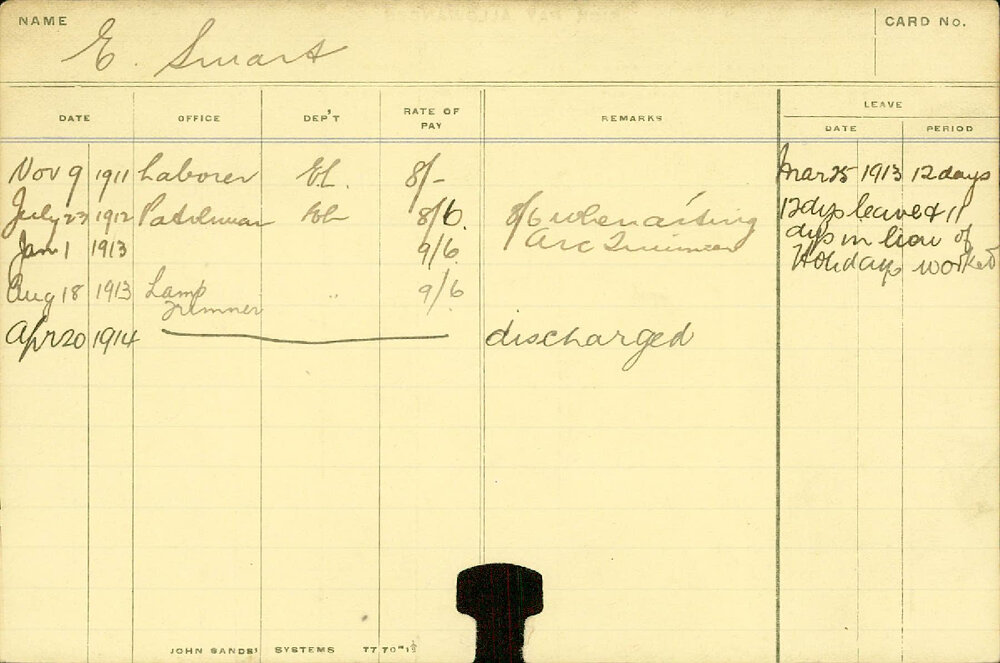 NAME E. Smart CARD No.
DATE OFFICE DEP'T RATE OF PAY REMARKS LEAVE
DATE PERIOD
Nov 9 1911 Laborer EL. 8/- Mar 25 1913 12 days
July 23 1912 Patrolman 8/6 8/6 when acting 12 dys leave & 11
Arc Trimmer dys in lieu of
Jan 1 1913 9/6 Holidays worked
Aug 18 1913 Lamp " 9/6
Trimmer
Apr 20 1914 discharged
JOHN SANDS' SYSTEMS